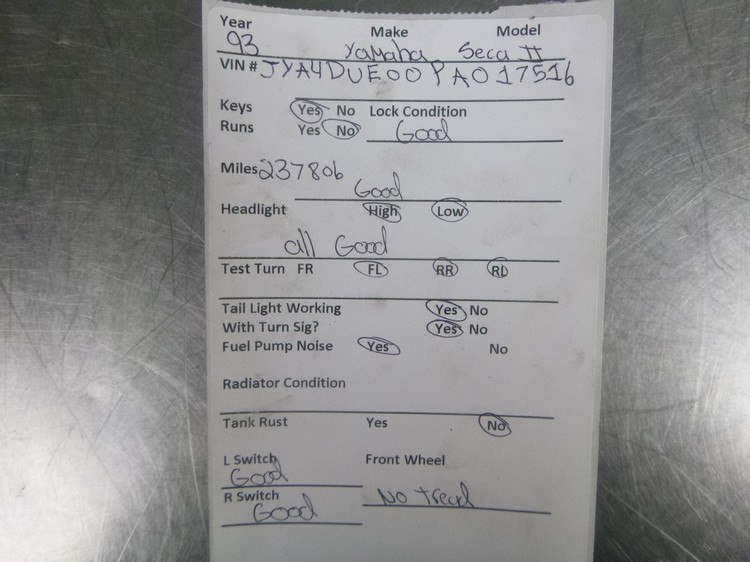 Year Make Model
93 Yamaha Seca II
VIN # JYA4DUE00PA017516
Keys Yes No Lock Condition
Runs Yes No Good
Miles 237806
Good
Headlight High Low
all Good
Test Turn FR FL RR RL
Tail Light Working Yes No
With Turn Sig? Yes No
Fuel Pump Noise Yes No
Radiator Condition
Tank Rust Yes No
L Switch Front Wheel
Good
R Switch No Tread
Good